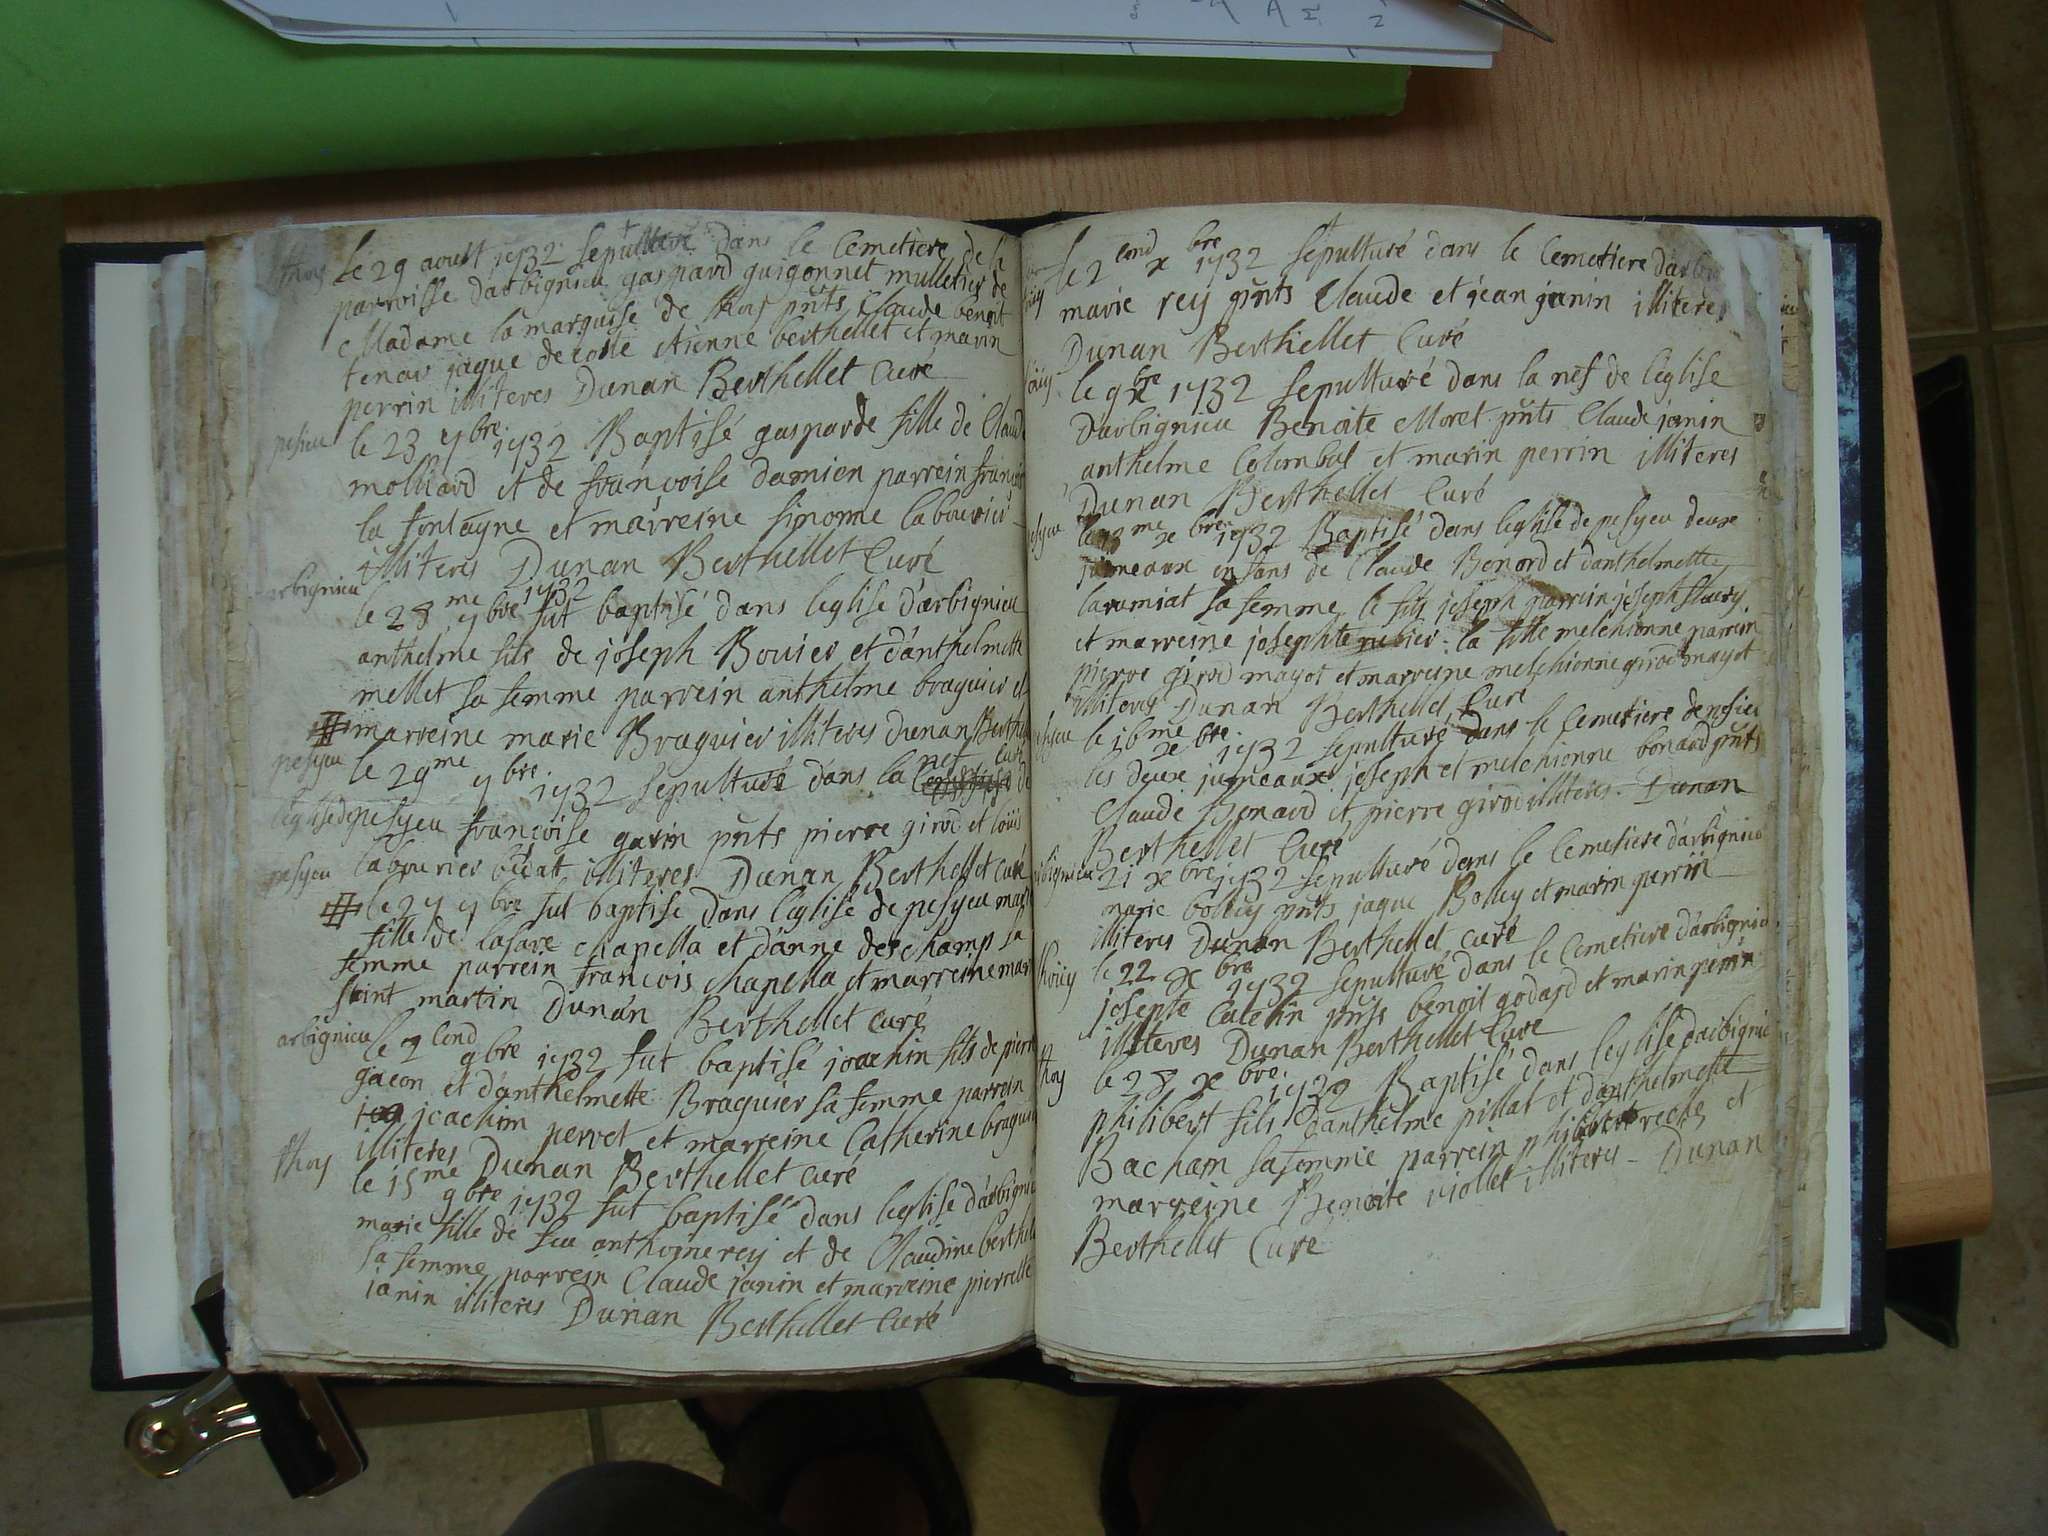 thoy le 29 aoust 1732 sepulturé dans le Cemetiere de la
parroisse d'arbignieu gaspard guigonnet mulletier de
Madame la marquise de thoy pñts Claude benoit
tenar jaque decotte etienne berthellet et marin
perrin illiteres Dunan Berthellet Curé
pesieu le 23 7bre. 1732 Baptisé gasparde fille de Claude
molliard et de françoise damien parrein françois
la fontagne et marreine simonne labourier
illiteres Dunan Berthellet Curé
arbignieu le 28me 7bre 1732 fut baptisé dans leglise d'arbignieu
anthelme fils de joseph Bovier et d'anthelmette
mellet sa femme parrein anthelme braguier et
marreine marie Braguier illiteres Dunan Berthellet
pesyeu le 29me 7bre. 1732 sepulturé dans la nef Curé de
leglise de pesyeu françoise garin pñts pierre girod et loüis
pesyeu labourier bidat illiteres Dunan Berthellet Curé
le 27 7bre fut baptise dans leglise de pesyeu marie
fille de lasare chapella et d'anne deschamp sa
femme parrein francois chapella et marreine marie
saint martin Dunan Berthellet Curé
arbignieu le 2cond 9bre 1732 fut baptisé joachin fils de pierre
gacon et d'anthelmette Braguier sa femme parrein
joachim pervet et marreine Catherine braguier
illiteres Dunan Berthellet Curé
thoy le 15me 9bre 1732 fut baptisé dans leglise d'arbignieu
marie fille de feu anthoine rey et de Claudine berthellet
sa femme parrein Claude janin et marreine pierrette
janin illiteres Dunan Berthellet Curé
le 2cond xbre 1732 sepulturé dans le Cemetiere darbignieu
marie rey pñts Claude et jean janin illiteres
Dunan Berthellet Curé
le 9 xbre 1732 sepulturé dans la nef de leglise
Darbignieu Benoite Moret pñts Claude janin
anthelme Colombat et marin perrin illiteres
Dunan Berthellet Curé
pesyeu le me xbre. 1732 Baptisé dans leglise de pesyeu deux
jumeaux enfans de Claude Bonard et danthelmette
laramiat sa femme le fils joseph parrein joseph fleury
et marreine josephte rubier. la fille melchionne parrein
pierre girod mayot et marreine melchionne girod mayot
illiteres Dunan Berthellet Curé
pesyeu le 16me xbre. 1732 sepulturé dans le Cemetiere de pesieu
les deux jumeaux joseph et melchionne bonard pñts
Claude Bonard et pierre girod illiteres. Dunan
Berthellet Curé
arbignieu 21 xbre 1732 sepulturé dans le Cemetiere d'arbignieu
marie bolley pñts jaque Bolley et marin perrin
illiteres Dunan Berthellet Curé
le 22 xbre 1732 sepulturé dans le Cemetiere d'arbignieu
josepte Catelin pñts benoit godard et marin perrin
illiteres Dunan Berthellet Curé
thoy le 28 xbre. 1732 Baptisé dans leglise darbignieu
philibert fils danthelme pillat et d'anthelmette
Bacham sa femme parrein philibert et
marreine Benoite viollet illiteres - Dunan
Berthellet Curé